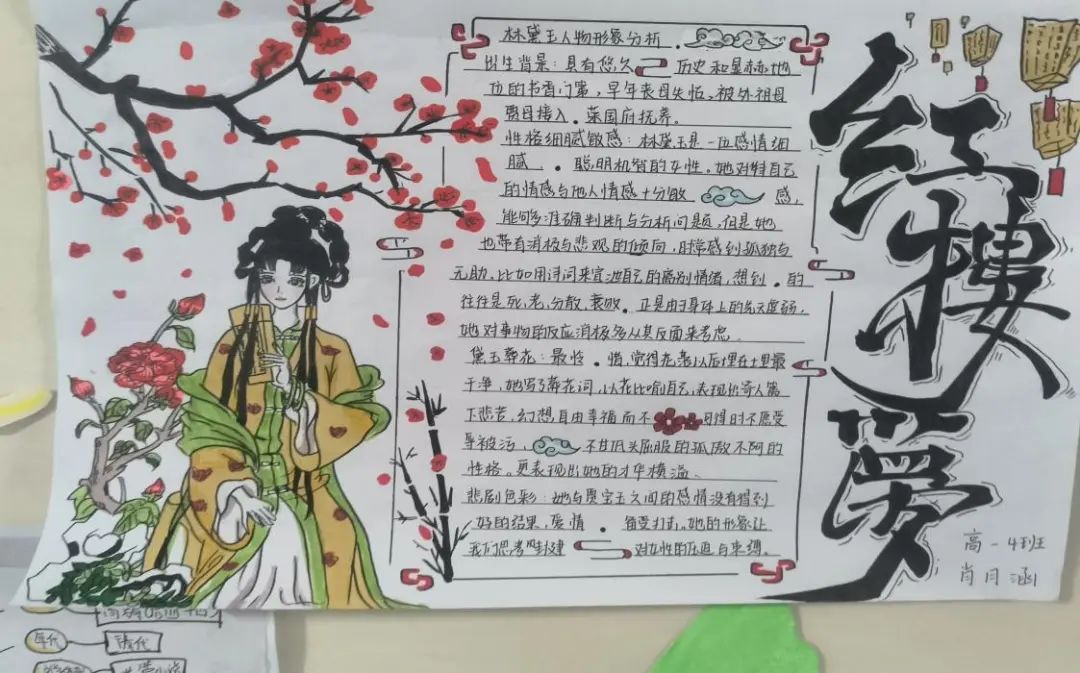 林黛玉人物形象分析.
出生背景:具有悠久 历史和显赫地
位的书香门第,早年丧母失怙,被外祖母
贾母接入.荣国府抚养。
性格细腻敏感:林黛玉是一位感情细
腻.聪明机智的女性。她对待自己
的情感与他人情感十分敏 感,
能够准确判断与分析问题,但是她
也带有消极与悲观的倾向,时常感到孤独与
无助,比如用诗词来宣泄自己的离别情绪,想到.的
往往是死,老,分散,衰败.正是由于身体上的先天虚弱,
她对事物的反应消极多从其反面来考虑.
黛玉葬花:最怜.惜,觉得花落以后埋在土里最
干净,她写了葬花词,以花比喻自己,表现出寄人篱
下悲苦,幻想自由幸福而不 可得时不愿受
辱被污, 不甘低头屈服的孤傲不阿的
性格。更表现出她的才华横溢.
悲剧色彩:她与贾宝玉之间的感情没有得到
好的结果,爱情.备受打击。她的形象让
我们思考 封建 对女性的压迫与束缚。
红楼梦
高一4班
肖月涵
年代
清代